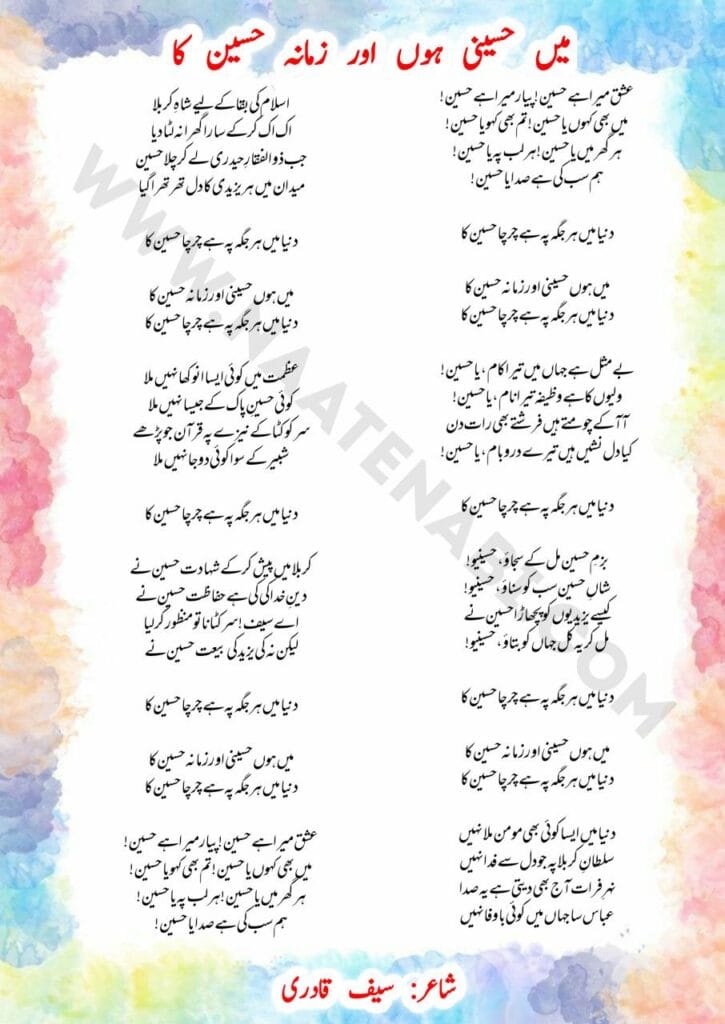 میں حسینی ہوں اور زمانہ حسین کا
عشق میرا ہے حسین! پیار میرا ہے حسین!
میں بھی کہوں یا حسین! تم بھی کہو یا حسین!
ہر گھر میں یا حسین! ہر لب پہ یا حسین!
ہم سب کی ہے صدا یا حسین!
دنیا میں ہر جگہ پہ ہے چرچا حسین کا
میں ہوں حسینی اور زمانہ حسین کا
دنیا میں ہر جگہ پہ ہے چرچا حسین کا
بے مثل ہے جہاں میں تیرا کام، یا حسین!
ولیوں کا ہے وظیفہ تیرا نام، یا حسین!
آ آ کے چومتے ہیں فرشتے بھی رات دن
کیا دل نشیں ہیں تیرے در و بام، یا حسین!
دنیا میں ہر جگہ پہ ہے چرچا حسین کا
بزمِ حسین مل کے سجاؤ، حسینیو!
شانِ حسین سب کو سناؤ، حسینیو!
کیسے یزیدیوں کو پچھاڑا حسین نے
مل کر یہ کل جہاں کو بتاؤ، حسینیو!
دنیا میں ہر جگہ پہ ہے چرچا حسین کا
میں ہوں حسینی اور زمانہ حسین کا
دنیا میں ہر جگہ پہ ہے چرچا حسین کا
دنیا میں ایسا کوئی بھی مومن ملا نہیں
سلطانِ کربلا پہ جو دل سے فدا نہیں
نہرِ فرات آج بھی دیتی ہے یہ صدا
عباس سا جہاں میں کوئی باوفا نہیں
اسلام کی بقا کے لیے شاہِ کربلا
اک اک کر کے سارا گھرانہ لٹا دیا
جب ذوالفقارِ حیدری لے کر چلا حسین
میدان میں ہر یزیدی کا دل تھر تھرا گیا
دنیا میں ہر جگہ پہ ہے چرچا حسین کا
میں ہوں حسینی اور زمانہ حسین کا
دنیا میں ہر جگہ پہ ہے چرچا حسین کا
عظمت میں کوئی ایسا انوکھا نہیں ملا
کوئی حسین پاک کے جیسا نہیں ملا
سر کو کٹا کے نیزے پہ قرآن جو پڑھے
شبیر کے سوا کوئی دوجا نہیں ملا
دنیا میں ہر جگہ پہ ہے چرچا حسین کا
کربلا میں پیش کر کے شہادت حسین نے
دینِ خدا کی کی ہے حفاظت حسین نے
اے سیف! سر کٹانا تو منظور کر لیا
لیکن نہ کی یزید کی بیعت حسین نے
دنیا میں ہر جگہ پہ ہے چرچا حسین کا
میں ہوں حسینی اور زمانہ حسین کا
دنیا میں ہر جگہ پہ ہے چرچا حسین کا
عشق میرا ہے حسین! پیار میرا ہے حسین!
میں بھی کہوں یا حسین! تم بھی کہو یا حسین!
ہر گھر میں یا حسین! ہر لب پہ یا حسین!
ہم سب کی ہے صدا یا حسین!
شاعر: سیف قادری
WWW.NAATENABI.COM